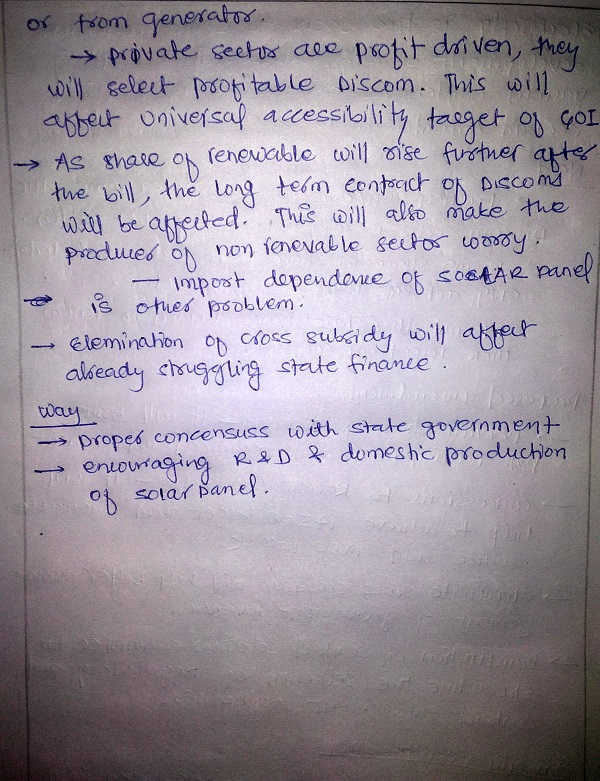 or from generator.
→ private sector are profit driven, they
will select profitable Discom. This will
affect Universal accessibility target of GOI
→ As share of renewable will rise further after
the bill, the long term contract of Discoms
will be affected. This will also make the
producer of non renevable sector worry.
— import dependence of SOLAR panel
is other problem.
→ Elemination of cross subsidy will affect
already struggling state finance.
Way
→ proper concensuss with state government
→ encouraging R&D & domestic production
of solar panel.